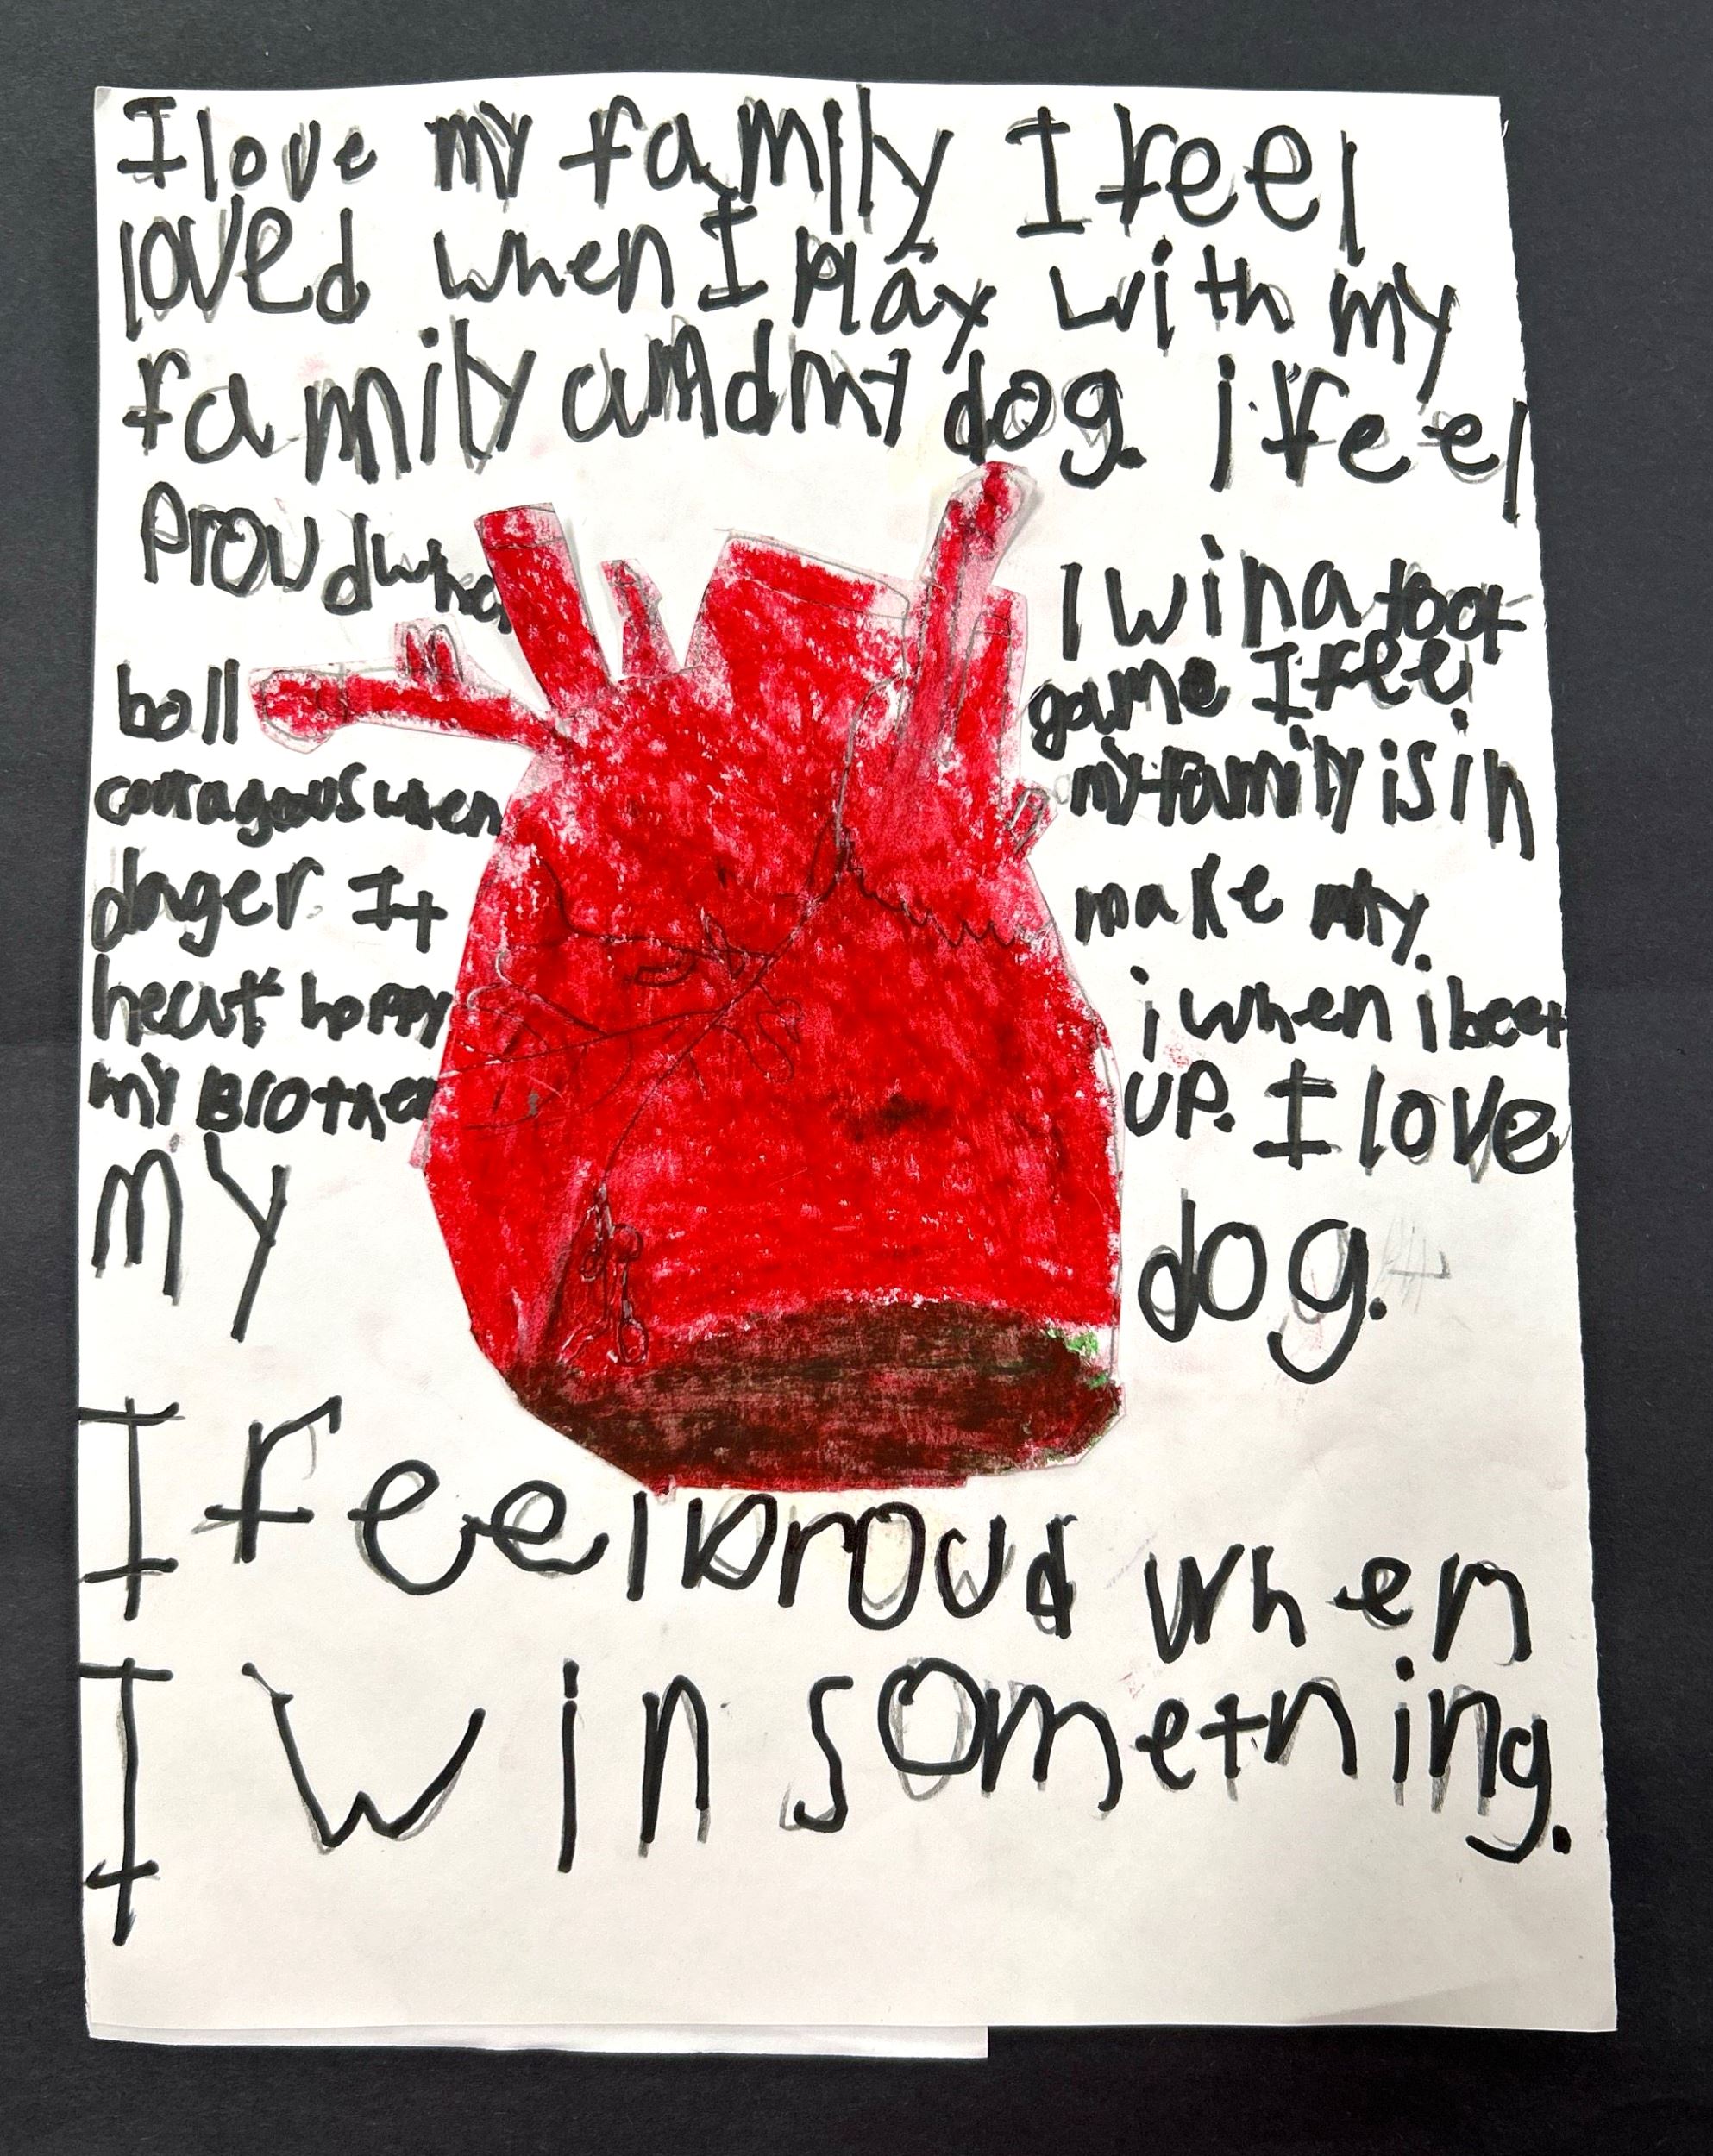 I love my family I feel
loved when I play with my
family and my dog. i feel
Proud when I win a foot
ball game I feel
couragous when my family is in
dager. It make my.
heart happy i when i beet
my Brother UP. I love
my dog.
I feel proud when
I win something.